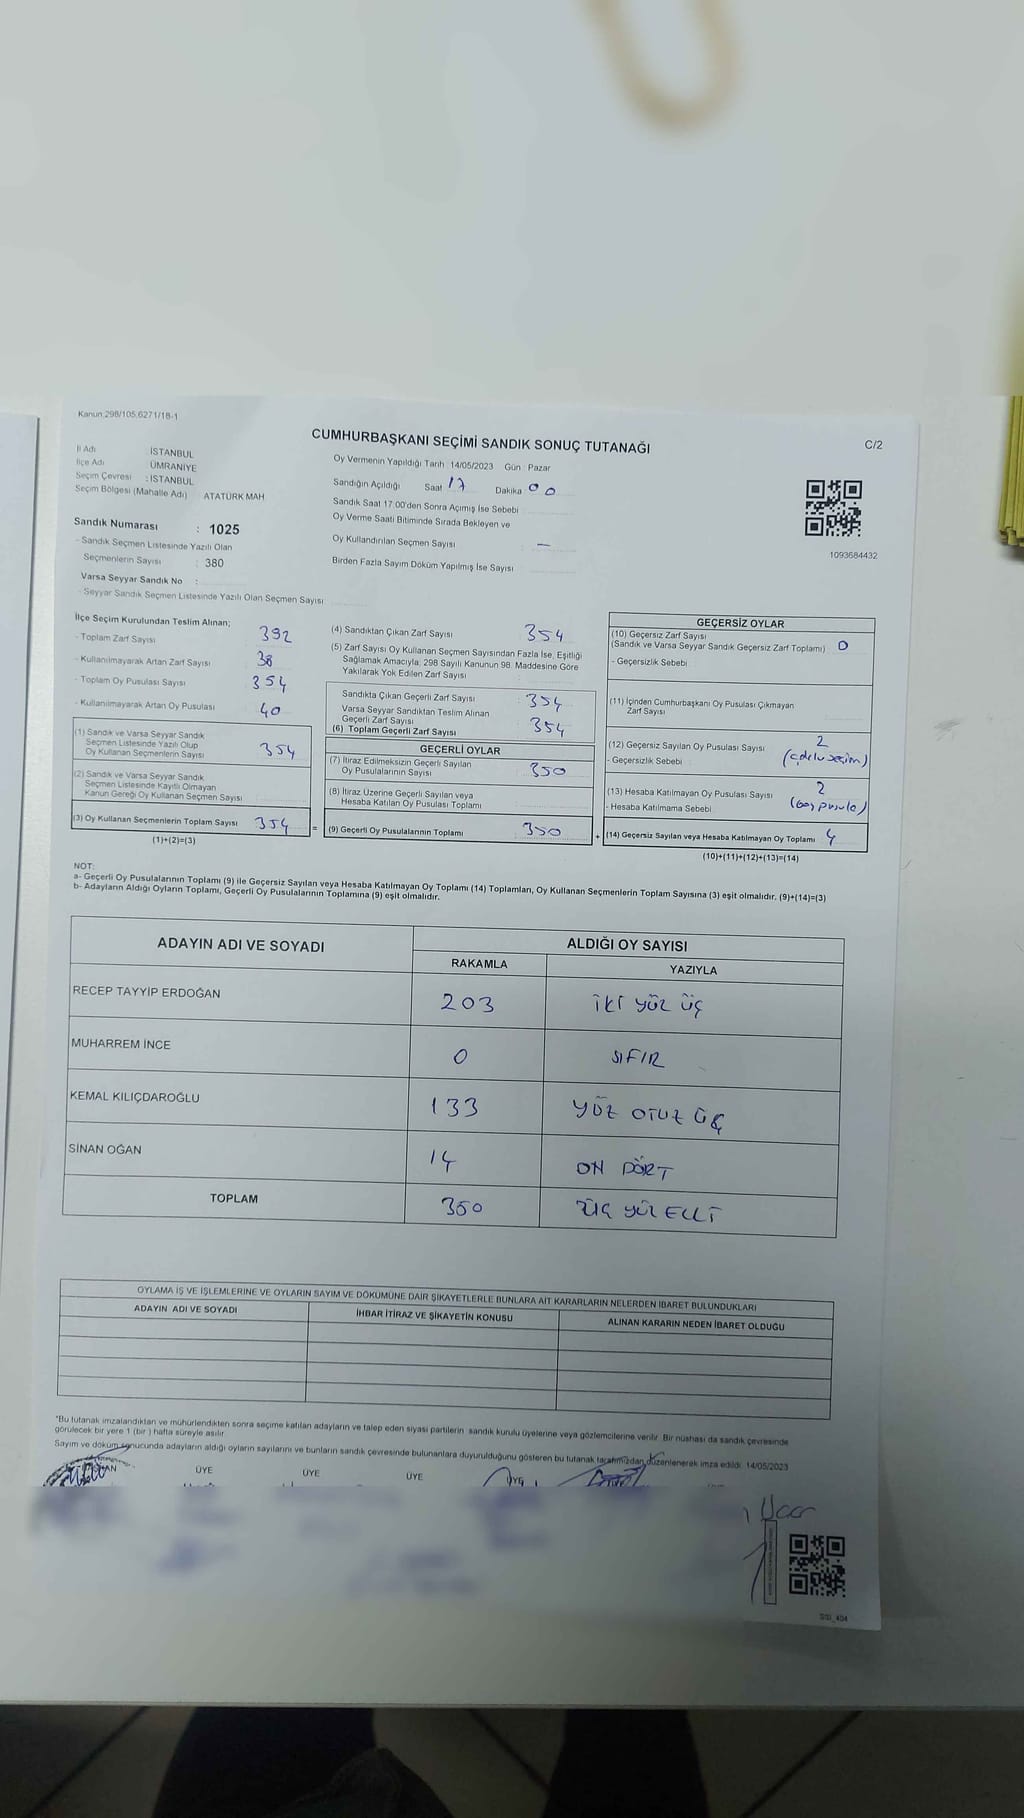 Kanun:298/105,6271/18-1
CUMHURBAŞKANI SEÇİMİ SANDIK SONUÇ TUTANAĞI
C/2
İl Adı : İSTANBUL
İlçe Adı : ÜMRANİYE
Seçim Çevresi : İSTANBUL
Seçim Bölgesi (Mahalle Adı) ATATÜRK MAH
Sandık Numarası : 1025
- Sandık Seçmen Listesinde Yazılı Olan
Seçmenlerin Sayısı : 380
Varsa Seyyar Sandık No :
- Seyyar Sandık Seçmen Listesinde Yazılı Olan Seçmen Sayısı
Oy Vermenin Yapıldığı Tarih 14/05/2023 Gün : Pazar
Sandığın Açıldığı Saat 17 Dakika 00
Sandık Saat 17:00'den Sonra Açımış İse Sebebi
Oy Verme Saati Bitiminde Sırada Bekleyen ve
Oy Kullandırılan Seçmen Sayısı : —
Birden Fazla Sayım Döküm Yapılmış İse Sayısı
1093684432
İlçe Seçim Kurulundan Teslim Alınan;
- Toplam Zarf Sayısı 392
- Kullanılmayarak Artan Zarf Sayısı 38
- Toplam Oy Pusulası Sayısı 354
- Kullanılmayarak Artan Oy Pusulası 40
(1) Sandık ve Varsa Seyyar Sandık
Seçmen Listesinde Yazılı Olup
Oy Kullanan Seçmenlerin Sayısı 354
(2) Sandık ve Varsa Seyyar Sandık
Seçmen Listesinde Kayıtlı Olmayan
Kanun Gereği Oy Kullanan Seçmen Sayısı
(3) Oy Kullanan Seçmenlerin Toplam Sayısı 354
(1)+(2)=(3)
(4) Sandıktan Çıkan Zarf Sayısı 354
(5) Zarf Sayısı Oy Kullanan Seçmen Sayısından Fazla İse, Eşitliği
Sağlamak Amacıyla, 298 Sayılı Kanunun 98. Maddesine Göre
Yakılarak Yok Edilen Zarf Sayısı
Sandıkta Çıkan Geçerli Zarf Sayısı : 354
Varsa Seyyar Sandıktan Teslim Alınan
Geçerli Zarf Sayısı
(6) Toplam Geçerli Zarf Sayısı : 354
GEÇERLİ OYLAR
(7) İtiraz Edilmeksizin Geçerli Sayılan
Oy Pusulalarının Sayısı : 350
(8) İtiraz Üzerine Geçerli Sayılan veya
Hesaba Katılan Oy Pusulası Toplamı
= (9) Geçerli Oy Pusulalarının Toplamı 350
GEÇERSİZ OYLAR
(10) Geçersiz Zarf Sayısı
(Sandık ve Varsa Seyyar Sandık Geçersiz Zarf Toplamı) 0
- Geçersizlik Sebebi
(11) İçinden Cumhurbaşkanı Oy Pusulası Çıkmayan
Zarf Sayısı
(12) Geçersiz Sayılan Oy Pusulası Sayısı 2
- Geçersizlik Sebebi
(13) Hesaba Katılmayan Oy Pusulası Sayısı 2
- Hesaba Katılmama Sebebi (Boş pusula)
+ (14) Geçersiz Sayılan veya Hesaba Katılmayan Oy Toplamı 4
(10)+(11)+(12)+(13)=(14)
NOT:
a- Geçerli Oy Pusulalarının Toplamı (9) ile Geçersiz Sayılan veya Hesaba Katılmayan Oy Toplamı (14) Toplamları, Oy Kullanan Seçmenlerin Toplam Sayısına (3) eşit olmalıdır. (9)+(14)=(3)
b- Adayların Aldığı Oyların Toplamı, Geçerli Oy Pusulalarının Toplamına (9) eşit olmalıdır.
ADAYIN ADI VE SOYADI ALDIĞI OY SAYISI
RAKAMLA YAZIYLA
RECEP TAYYİP ERDOĞAN 203 İKİ YÜZ ÜÇ
MUHARREM İNCE 0 SIFIR
KEMAL KILIÇDAROĞLU 133 YÜZ OTUZ ÜÇ
SİNAN OĞAN 14 ON DÖRT
TOPLAM 350 ÜÇ YÜZ ELLİ
OYLAMA İŞ VE İŞLEMLERİNE VE OYLARIN SAYIM VE DÖKÜMÜNE DAİR ŞİKAYETLERLE BUNLARA AİT KARARLARIN NELERDEN İBARET BULUNDUKLARI
ADAYIN ADI VE SOYADI İHBAR İTİRAZ VE ŞİKAYETİN KONUSU ALINAN KARARIN NEDEN İBARET OLDUĞU
"Bu tutanak imzalandıktan ve mühürlendikten sonra seçime katılan adayların ve talep eden siyasi partilerin sandık kurulu üyelerine veya gözlemcilerine verilir. Bir nüshası da sandık çevresinde
görülecek bir yere 1 (bir ) hafta süreyle asılır.
Sayım ve döküm sonucunda adayların aldığı oyların sayılarını ve bunların sandık çevresinde bulunanlara duyurulduğunu gösteren bu tutanak tarafımızdan düzenlenerek imza edildi. 14/05/2023
ÜYE ÜYE ÜYE ÜYE